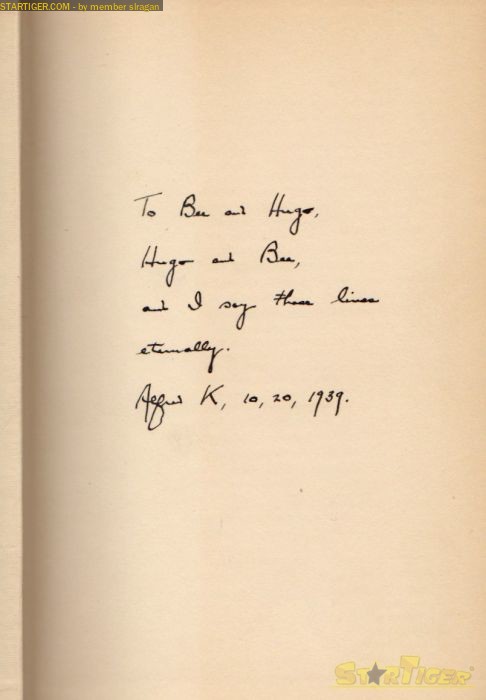 STARTIGER.COM - by member slragan
To Bee and Hugo,
Hugo and Bee,
and I say these lines
eternally.
Alfred K, 10, 20, 1939.
STARTIGER